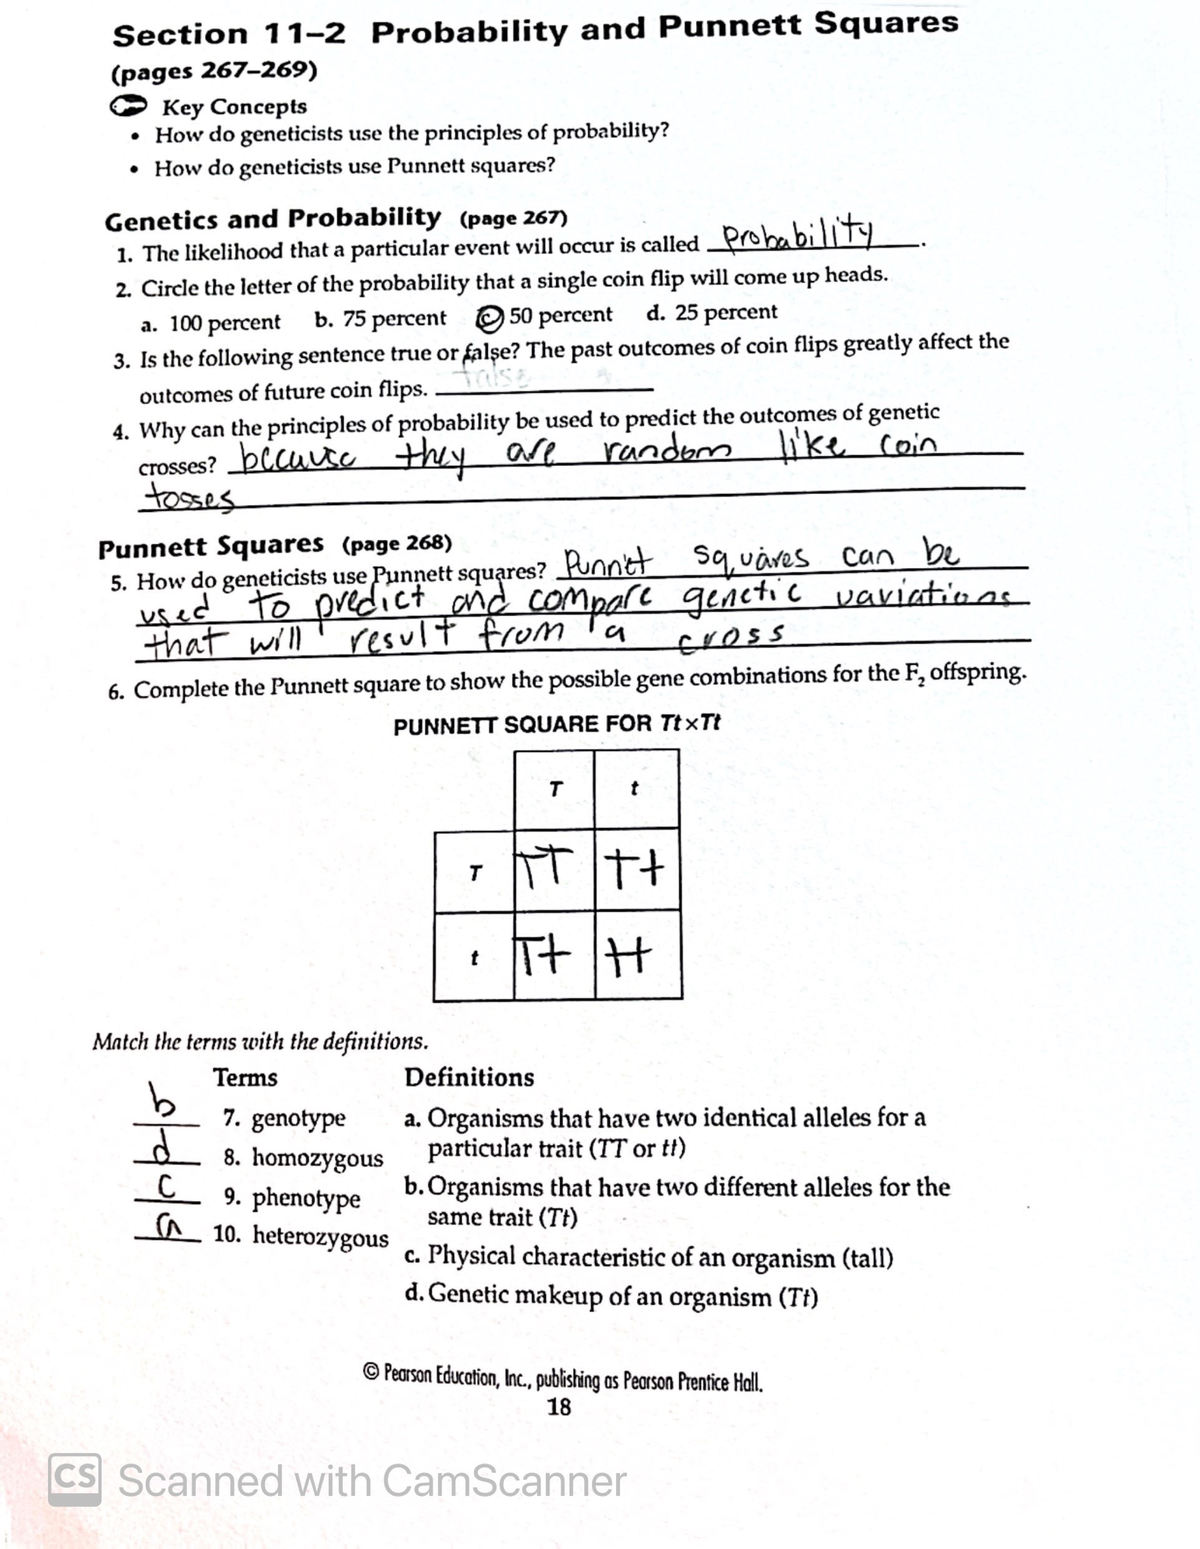 Section 11–2 Probability and Punnett Squares
(pages 267–269)
Key Concepts
• How do geneticists use the principles of probability?
• How do geneticists use Punnett squares?
Genetics and Probability (page 267)
1. The likelihood that a particular event will occur is called probability.
2. Circle the letter of the probability that a single coin flip will come up heads.
a. 100 percent b. 75 percent c. 50 percent d. 25 percent
3. Is the following sentence true or false? The past outcomes of coin flips greatly affect the
outcomes of future coin flips. false
4. Why can the principles of probability be used to predict the outcomes of genetic
crosses? because they are random like coin
tosses
Punnett Squares (page 268)
5. How do geneticists use Punnett squares? Punnitt squares can be
used to predict and compare genetic variations
that will result from a cross
6. Complete the Punnett square to show the possible gene combinations for the F₂ offspring.
PUNNETT SQUARE FOR Tt × Tt
T t
T TT Tt
t Tt tt
Match the terms with the definitions.
Terms Definitions
b 7. genotype a. Organisms that have two identical alleles for a
particular trait (TT or tt)
d 8. homozygous
c 9. phenotype b. Organisms that have two different alleles for the
same trait (Tt)
a 10. heterozygous
c. Physical characteristic of an organism (tall)
d. Genetic makeup of an organism (Tt)
© Pearson Education, Inc., publishing as Pearson Prentice Hall.
18
CS Scanned with CamScanner